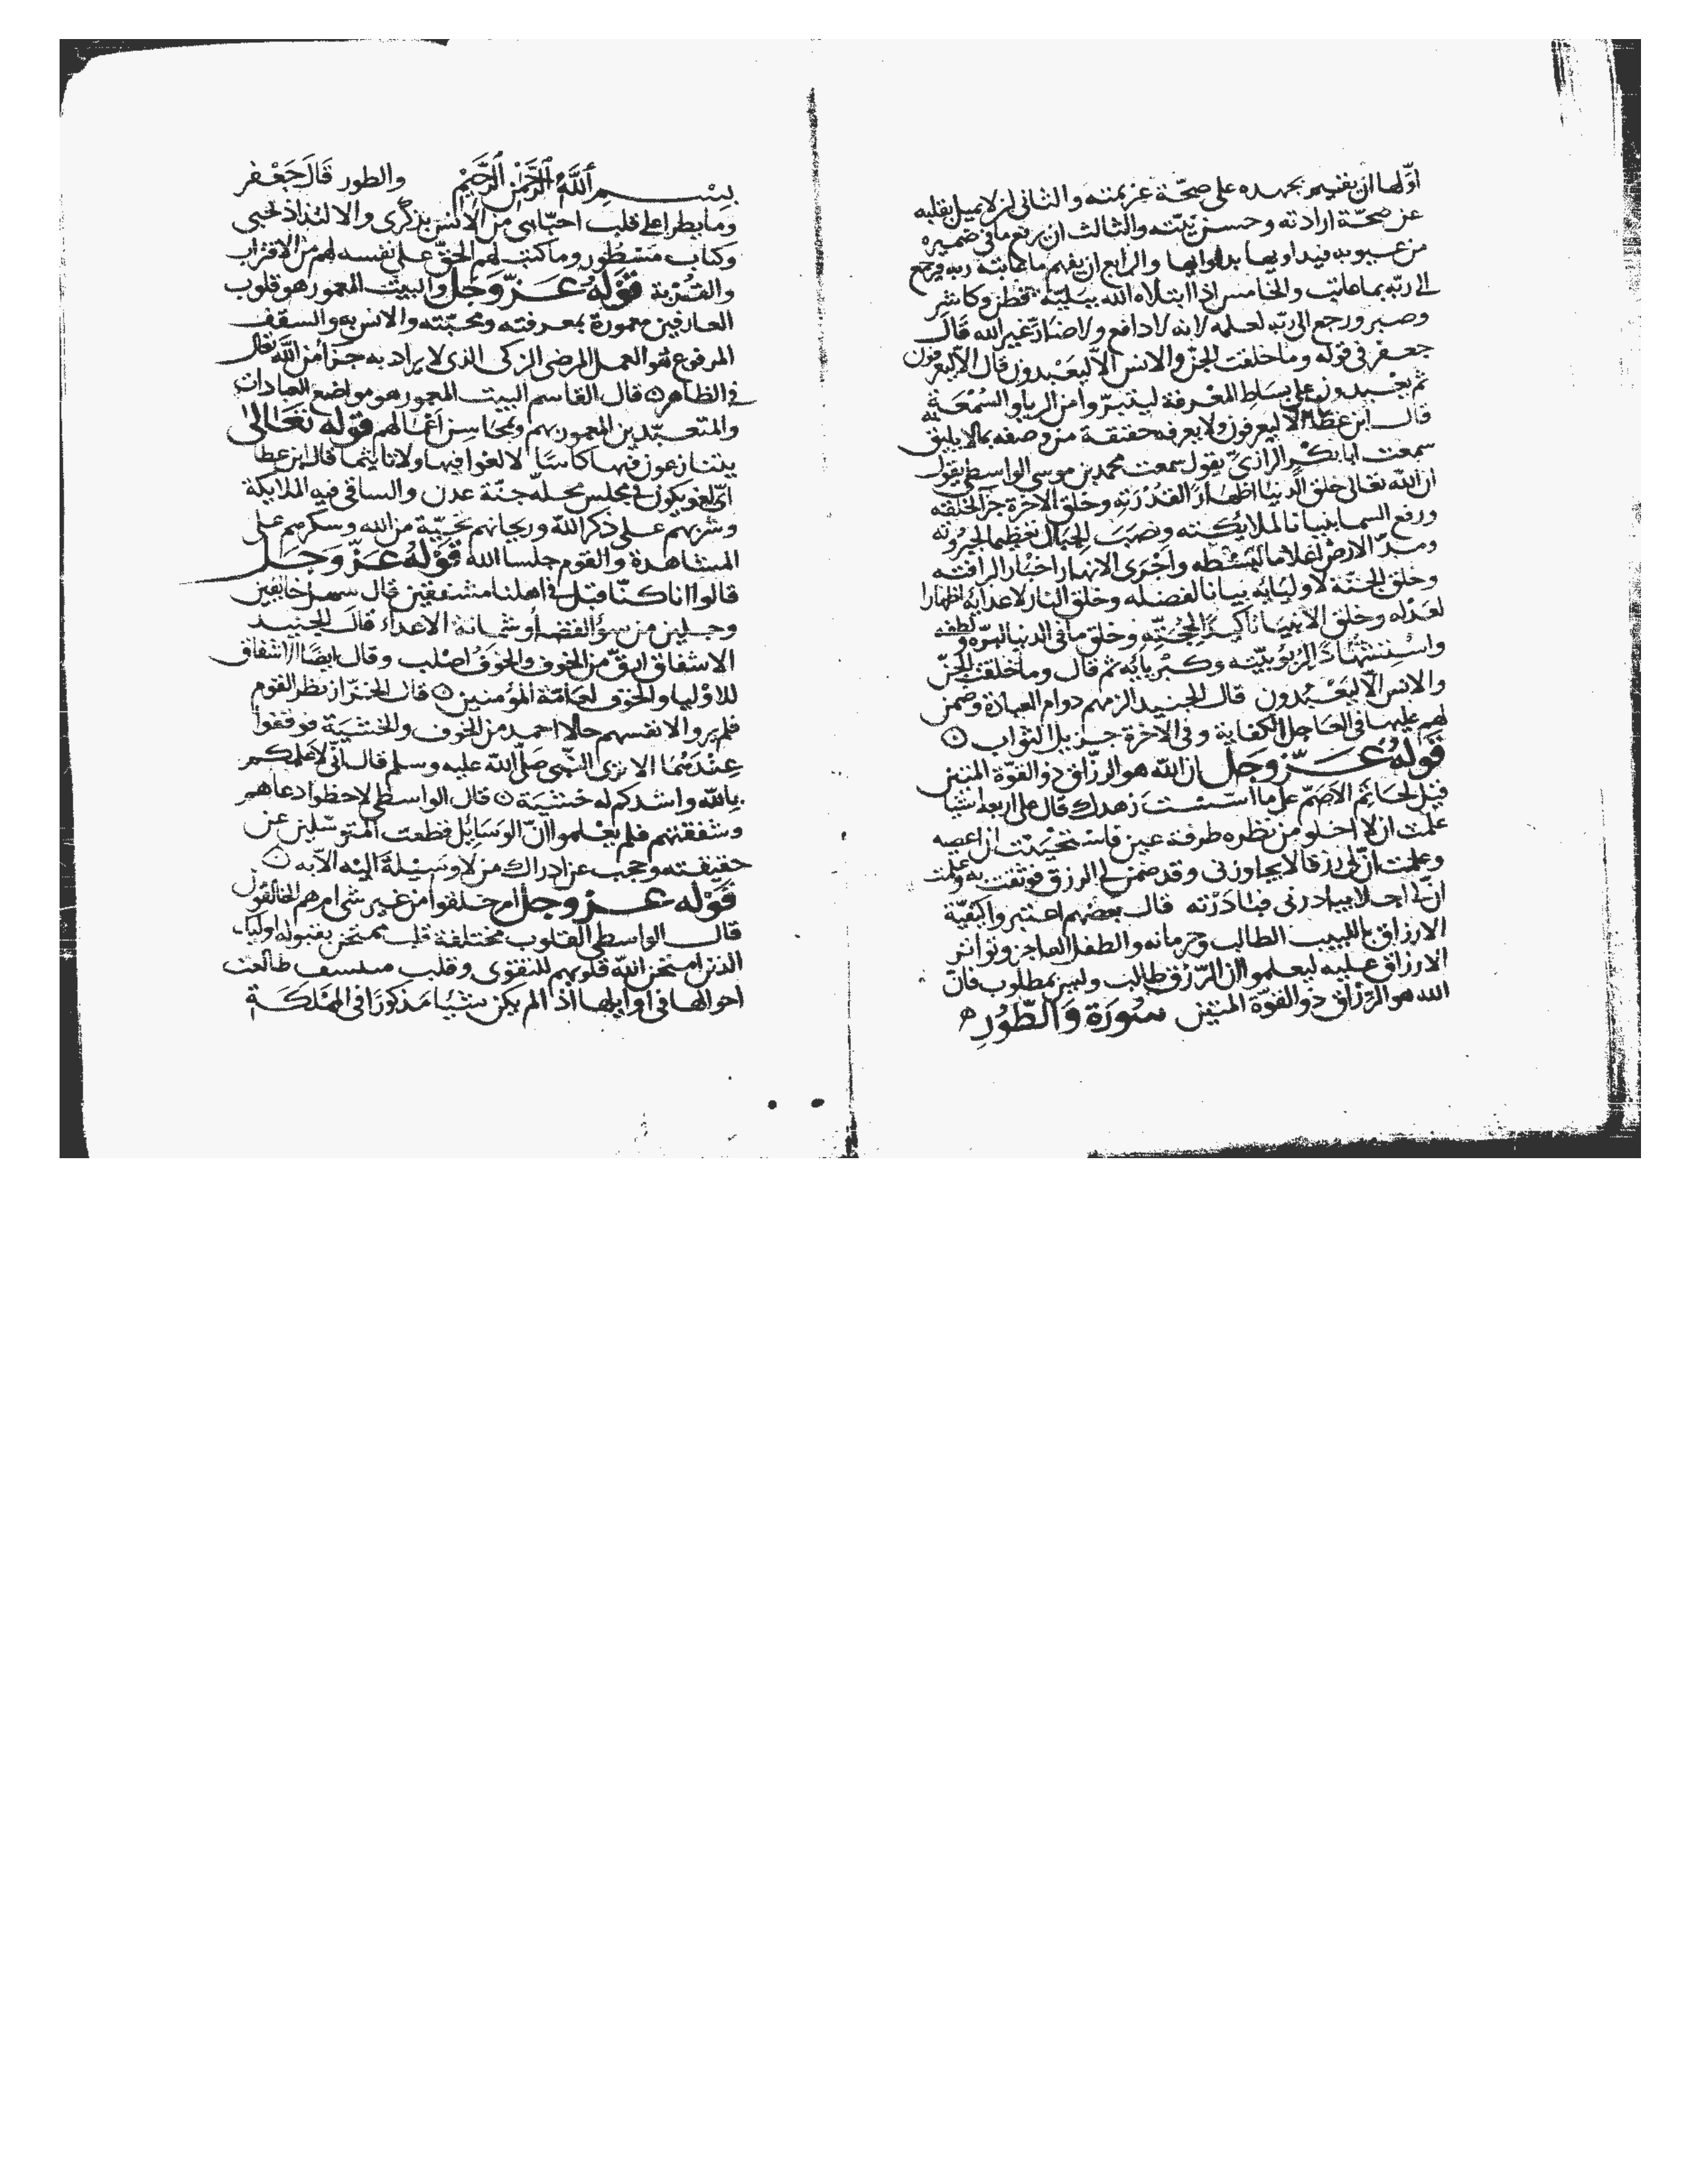 اوّلها ان يقيم بجهده على صحّة عزيمته والثانى ان لا يميل بقلبه
عن صحّة ارادته وحسن نيّته والثالث ان يرفع ما فى ضميره
من عيوبه فيداويها بدوايها والرابع ان يفهم ما عاتبه ربه فيرجع
الى ربّه بما عاتب والخامس اذا ابتلاه الله ببليّة فطن وكاشر
وصبر ورجع الى ربّه لعلمه لانه لا دافع ولا ضارّ غير الله قال
جعفر فى قوله وما خلقت الجنّ والانس الّا ليعبدون قال الّا ليعرفون
ثم يعبدون على بساط المعرفة ليتبرّوا من الريا والسمعة
قال ابن عطا الّا ليعرفون ولا يعرفه حقيقة من وصفه بما لا يليق به
سمعت ابا بكر الرازىّ يقول سمعت محمد بن موسى الواسطى يقول
ان الله تعالى خلق الدنيا اظهارًا لقدرته وخلق الاخرة جزآ لخلقه
ورفع السما بنيانا لملايكته ونصب الجبال تعظيما لجبروته
ومدّ الارض اعلاما لبسطه واجرى الانهار اخبارا لرافته
وخلق الجنّة لاوليايه بيانا لفضله وخلق النار لاعدايه اظهارا
لعدله وخلق الانبيا تاكيدًا لحجّته وخلق ما فى الدنيا لبرّه ولطفه
واستشهادًا لربوبيّته وكبريآيه ثم قال وما خلقت الجنّ
والانس الّا ليعبدون قال الجنيد الزمهم دوام العبادة وضمن
لهم عليها فى العاجل الكفاية وفى الاخرة جزيل الثواب
قوله عزّ وجل ان الله هو الرزّاق ذو القوّة المتين
قيل لحاتم الاصمّ على ما اسّست زهدك قال على اربعه اشيا
علمت ان لا اخلو من نظره طرفة عين فاستحييت ان اعصيه
وعلمت انّ لى رزقا لا يجاوزنى وقد ضمن لى الرزق فوثقت به وعلمت
انّ لى اجلا يبادرنى فبادرته قال بعضهم اعتبروا كيفيّة
الارزاق باللبيب الطالب وحرمانه والطفل العاجز وتواتر
الارزاق عليه ليعلموا ان الرّزق طالب وليس بمطلوب فانّ
الله هو الرزّاق ذو القوّة المتين سورة والطّور
بسم الله الرحمن الرحيم والطور قال جعفر
وما يطرا على قلب احبّاىى من الانس بذكرى والالتذاذ بحبى
وكتاب مسطور وما كتب لهم الحقّ على نفسه لهم من الاقتراب
والقربة قوله عزّ وجل والبيت المعمور هو قلوب
العارفين معمورة بمعرفته ومحبّته والانس به والسقف
المرفوع هو العمل المرضى الزكى الذى لا يراد به جزآ من الله تعالى
فى الظاهر قال القاسم البيت المعمور هو مواضع العبادات
والمتعبّدين المعمور بهم وبمحاسن اعمالهم قوله تعالى
يتنازعون فيها كاسًا لا لغوا فيها ولا تاثيما قال ابن عطا
اىّ لغو يكون فى مجلس محلّه جنّة عدن والساقى فيه الملايكة
وشربهم على ذكر الله وريحانهم تحيّة من الله وسكرهم على
المشاهدة والقوم جلسا الله قوله عزّ وجل
قالوا انا كنّا قبل فى اهلنا مشفقين قال سهل خايفين
وجلين من سوء القضآ وشماتة الاعداء قال الجنيد
الاشفاق ارقّ من الخوف والخوف اصلب وقال ايضًا الاشفاق
للاوليا والخوف لعامّة المؤمنين قال الخرّاز نظر القوم
فلم يروا لانفسهم حالا احمد من الخوف والخشية فوقفوا
عندهما الا ترى النبى صلّى الله عليه وسلم قال انّى لاعلمكم
بالله واشدكم له خشية قال الواسطى لاحظوا دعاهم
وشفقتهم فلم يعلموا انّ الوسايل قطعت المتوسّلين عن
حقيقته وحجب عن ادراك من لا وسيلة اليه الا به
قوله عزّ وجل ام خلقوا من غير شى ام هم الخالقون
قال الواسطى القلوب مختلفة قلب ممتحن بقبوله اولياء
الذين امتحن الله قلوبهم للتقوى وقلب طالعت
احوالها فى اوايلها اذا لم يكن شيئا مذكورًا فى المملكة